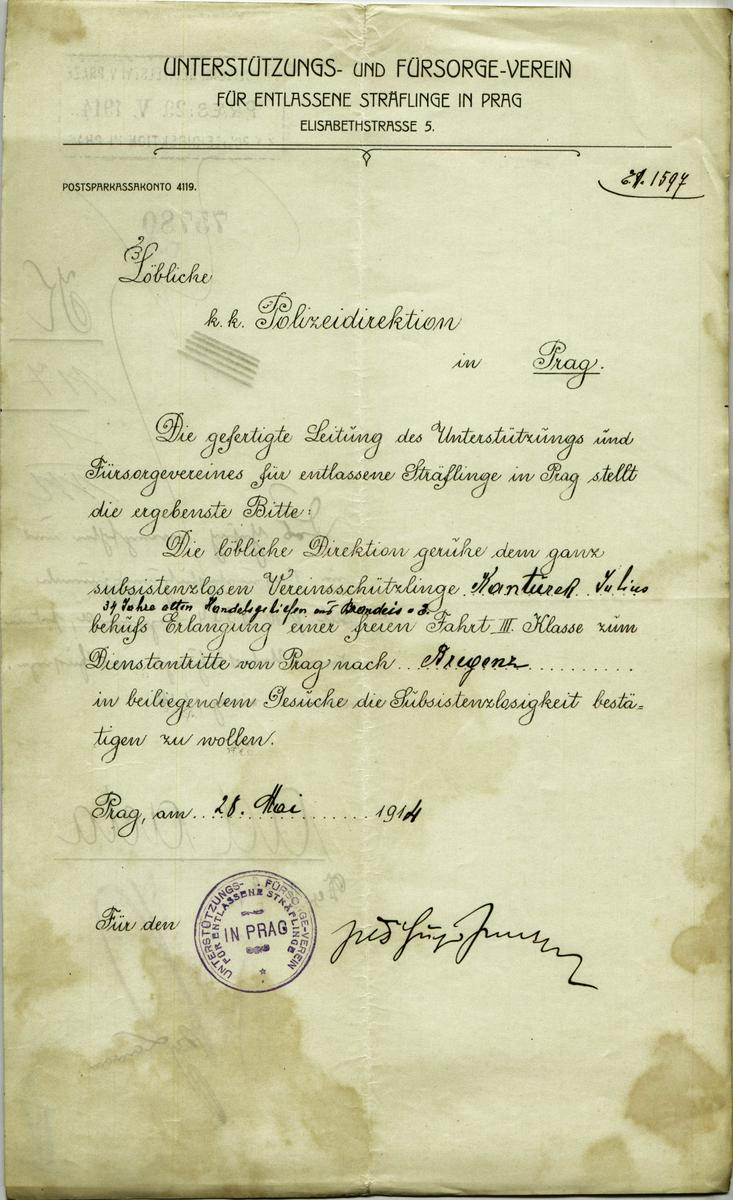 UNTERSTÜTZUNGS- UND FÜRSORGE-VEREIN
FÜR ENTLASSENE STRÄFLINGE IN PRAG
ELISABETHSTRASSE 5.
POSTSPARKASSAKONTO 4119.
1597
Löbliche
k. k. Polizeidirektion
in Prag.
Die gefertigte Leitung des Unterstützungs und
Fürsorgevereines für entlassene Sträflinge in Prag stellt
die ergebenste Bitte:
Die löbliche Direktion geruhe dem ganz
subsistenzlosen Vereinsschützlinge Kanturek Julius
34 Jahre alten Handelsgehilfen aus Brandeis a. E.
behufs Erlangung einer freien Fahrt III. Klasse zum
Dienstantritte von Prag nach ... Bregenz ..........
in beiliegendem Gesuche die Subsistenzlosigkeit bestä=
tigen zu wollen.
Prag, am ... 28. Mai ........ 1914
Für den
UNTERSTÜTZUNGS- FÜRSORGE-VEREIN
FÜR ENTLASSENE STRÄFLINGE
IN PRAG